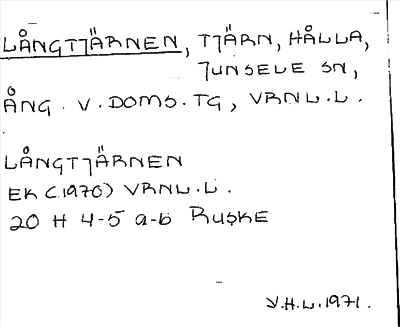 LÅNGTJÄRNEN, TJÄRN, HÅLLA,
JUNSELE SN,
ÅNG. V. DOMS. TG, VRNL.L.
LÅNGTJÄRNEN
EK (1970) VRNL.L.
20 H 4-5 a-b RUSKE
V.H.L. 1971.